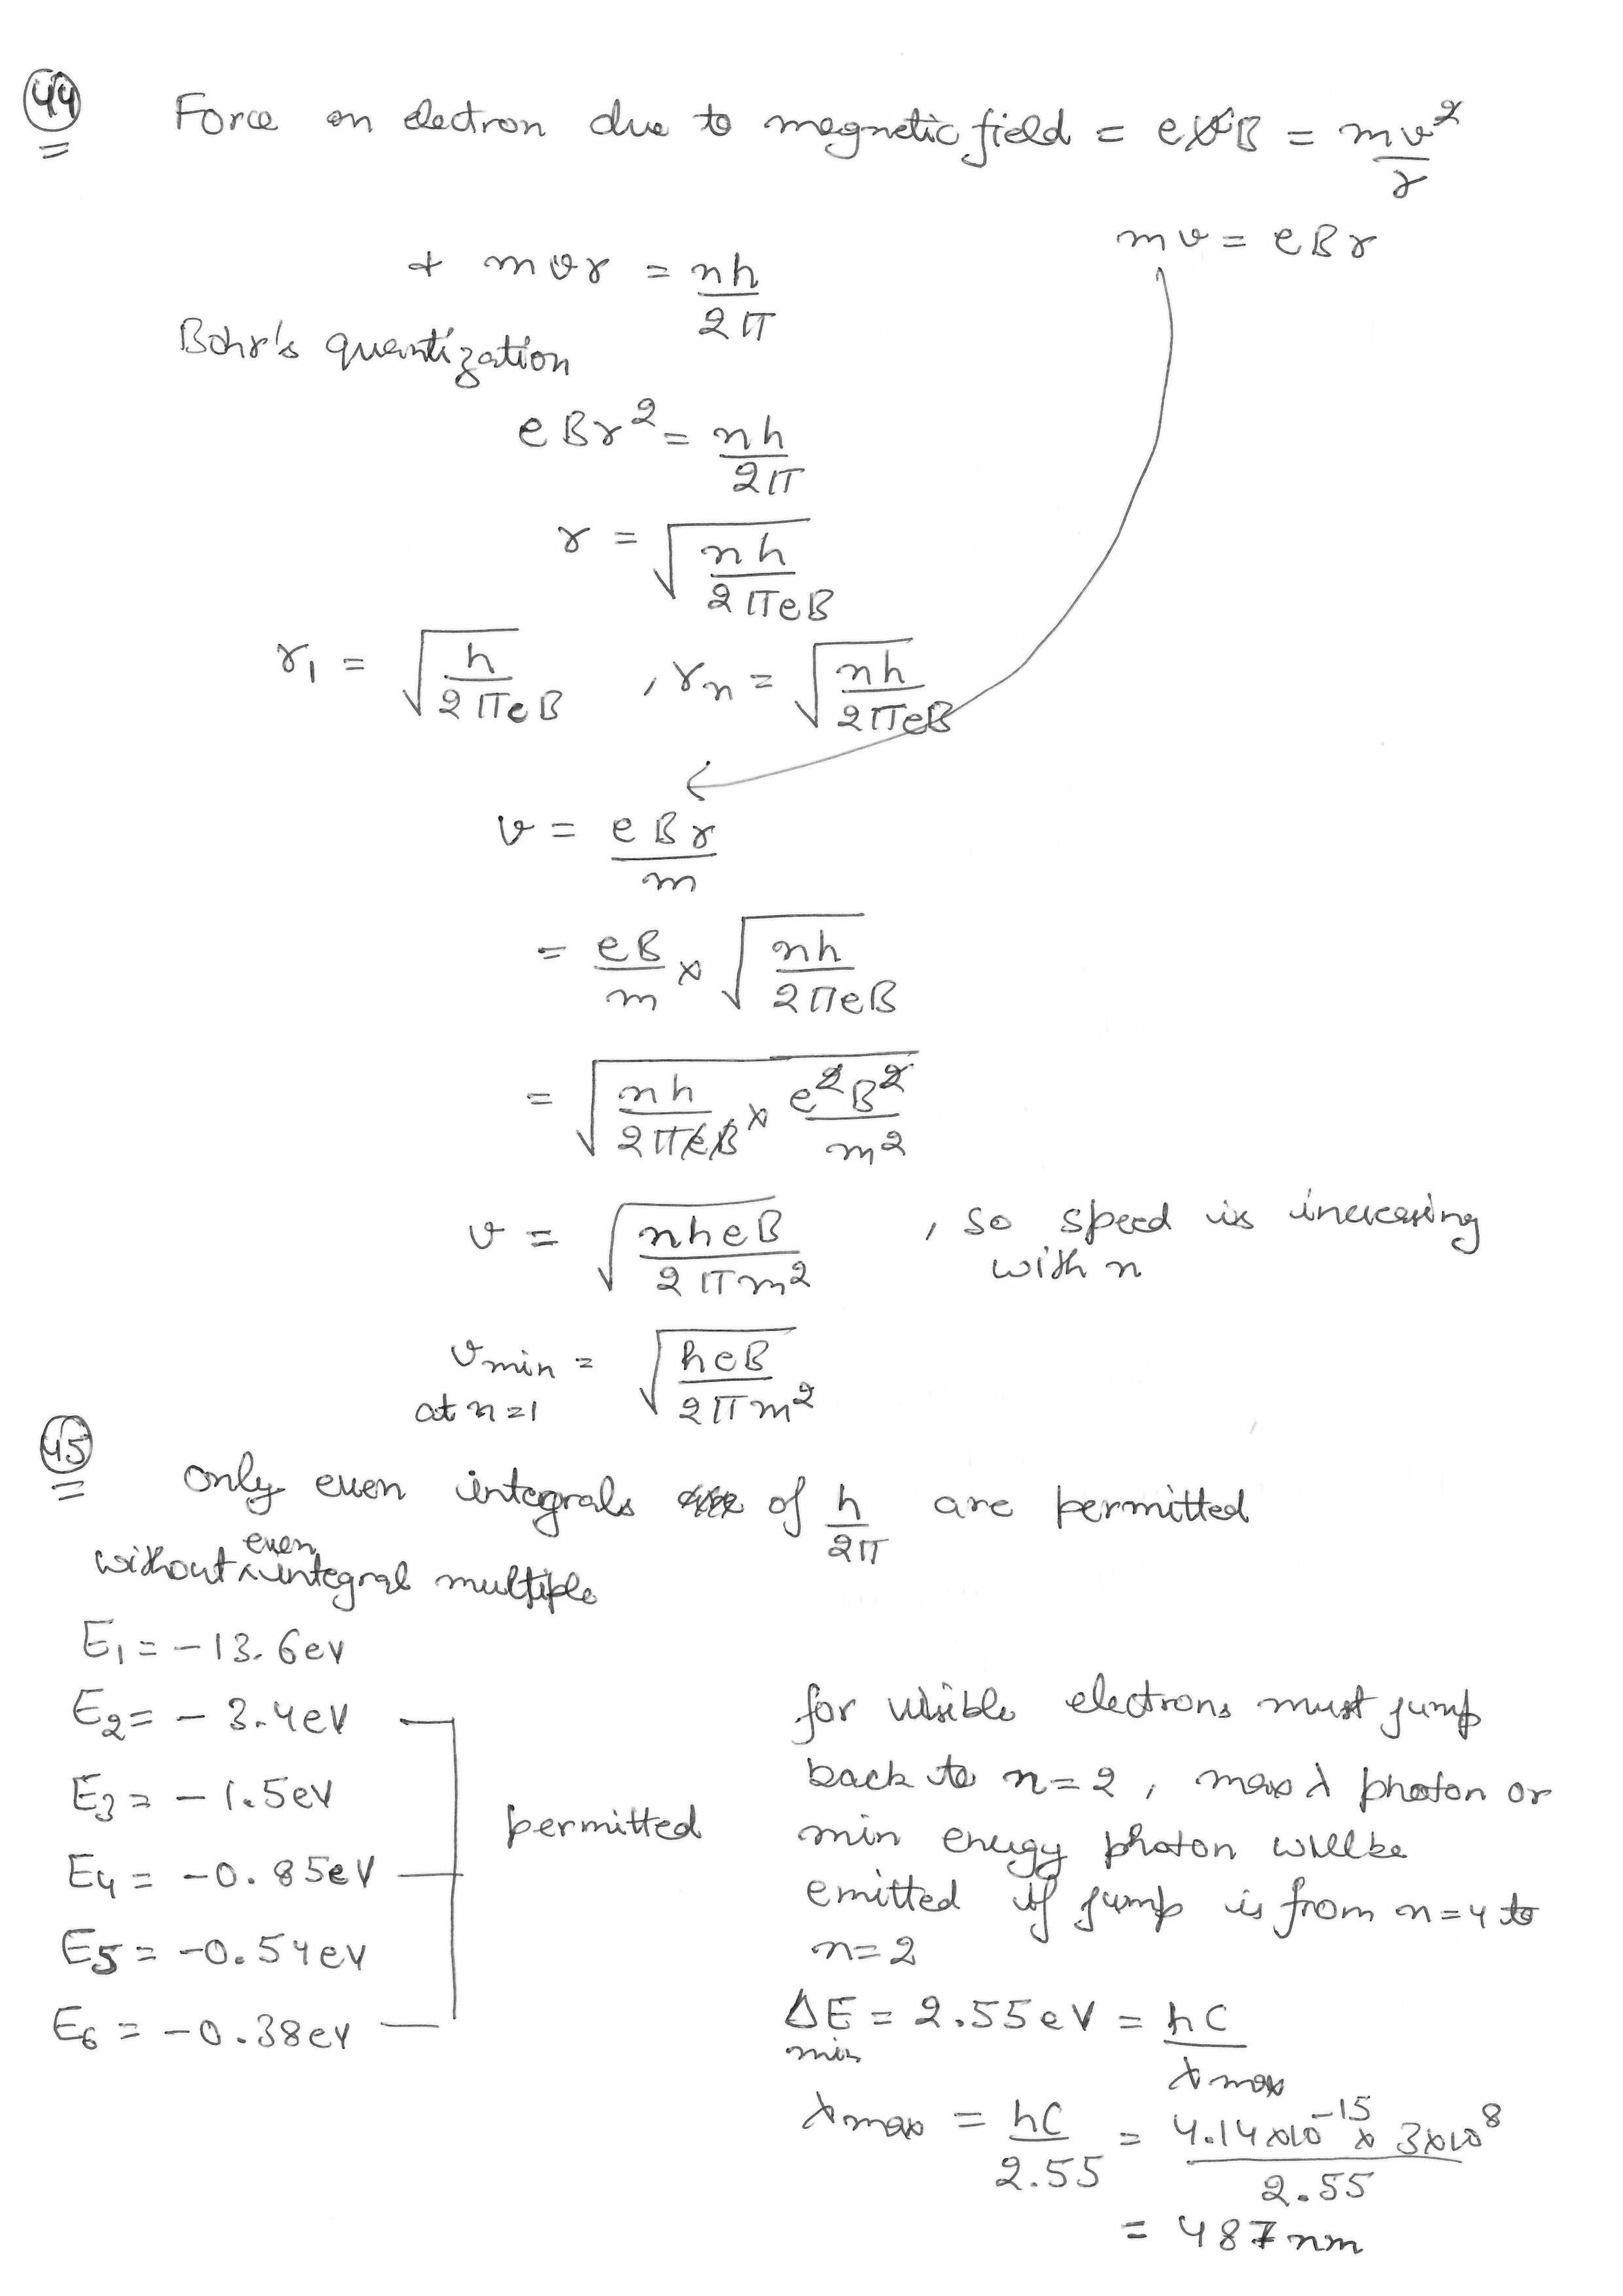 44 Force on electron due to magnetic field = evB = mv²/r
mv = eBr
+ mvr = nh/2π
Bohr's quantization
eBr² = nh/2π
r = √(nh/2πeB)
r₁ = √(h/2πeB) , rₙ = √(nh/2πeB)
v = eBr/m
= eB/m × √(nh/2πeB)
= √(nh/2πeB × e²B²/m²)
v = √(nheB/2πm²) , so speed is increasing
with n
vmin = √(heB/2πm²)
at n=1
45 only even integrals of h/2π are permitted
without even integral multiple
E₁ = -13.6ev
E₂ = - 3.4eV
E₃ = - 1.5eV
E₄ = -0.85eV
E5 = -0.54eV
E₆ = -0.38eV
permitted
for visible electrons must jump
back to n=2, max λ photon or
min energy photon will be
emitted if jump is from n=4 to
n=2
ΔE = 2.55eV = hC/λmax
min
λmax = hC/2.55 = 4.14×10⁻¹⁵ × 3×10⁸/2.55
= 487nm